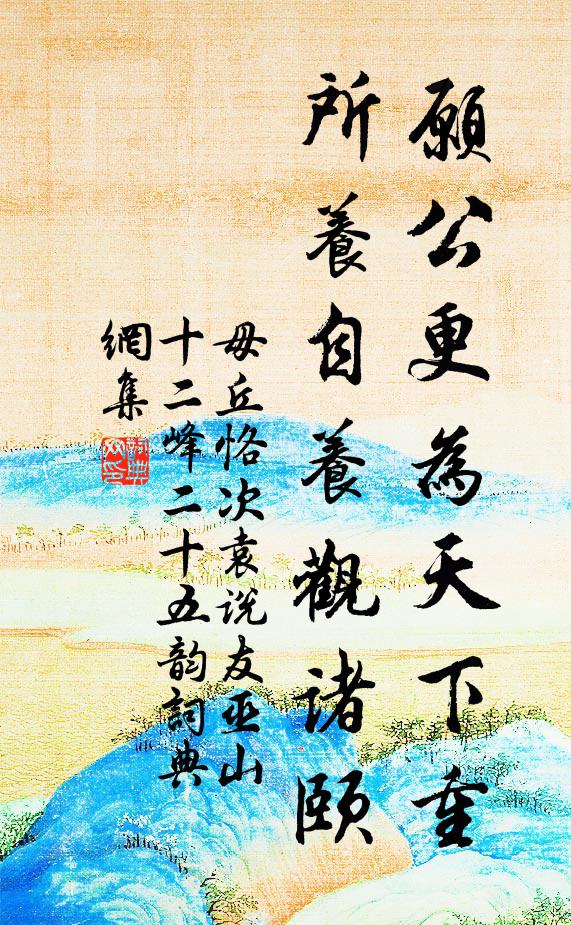 願公更為天下重
所養自養觀諸頤
毋丘恪次袁說友巫山
十二峰二十五韵詞典
網集